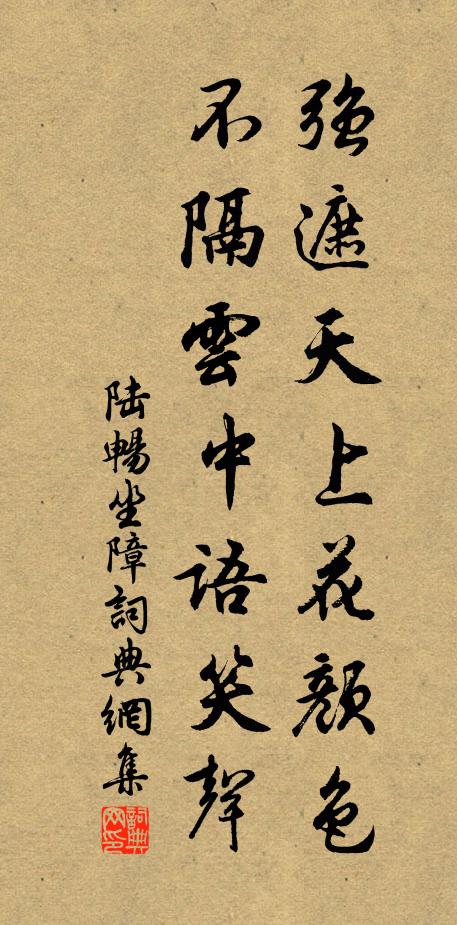 強遮天上花顏色
不隔雲中語笑聲
陸暢坐障詞典網集
詞典網印